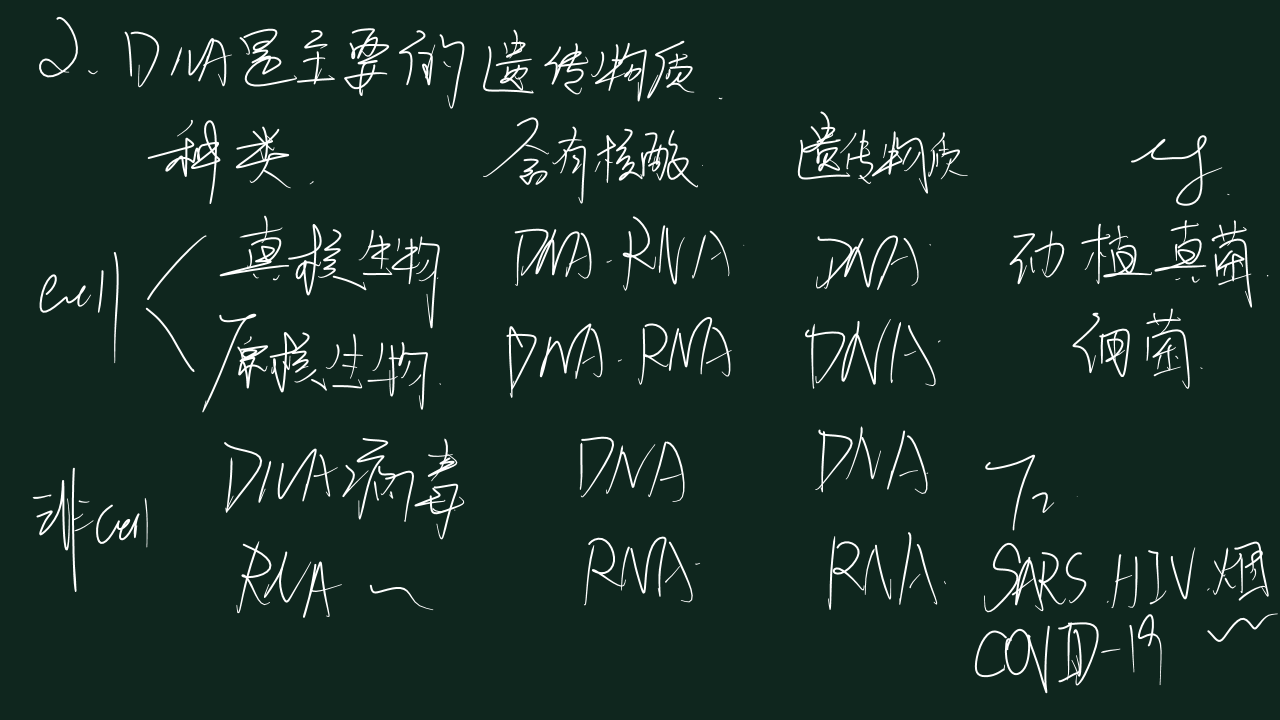 2. DNA是主要的遗传物质.
种类. 含有核酸. 遗传物质 eg.
cell 真核生物 DNA.RNA. DNA. 动植真菌.
原核生物. DNA.RNA DNA. 细菌.
非cell DNA病毒 DNA DNA T2.
RNA ~ RNA. RNA. SARS.HIV.烟~
COVID-19